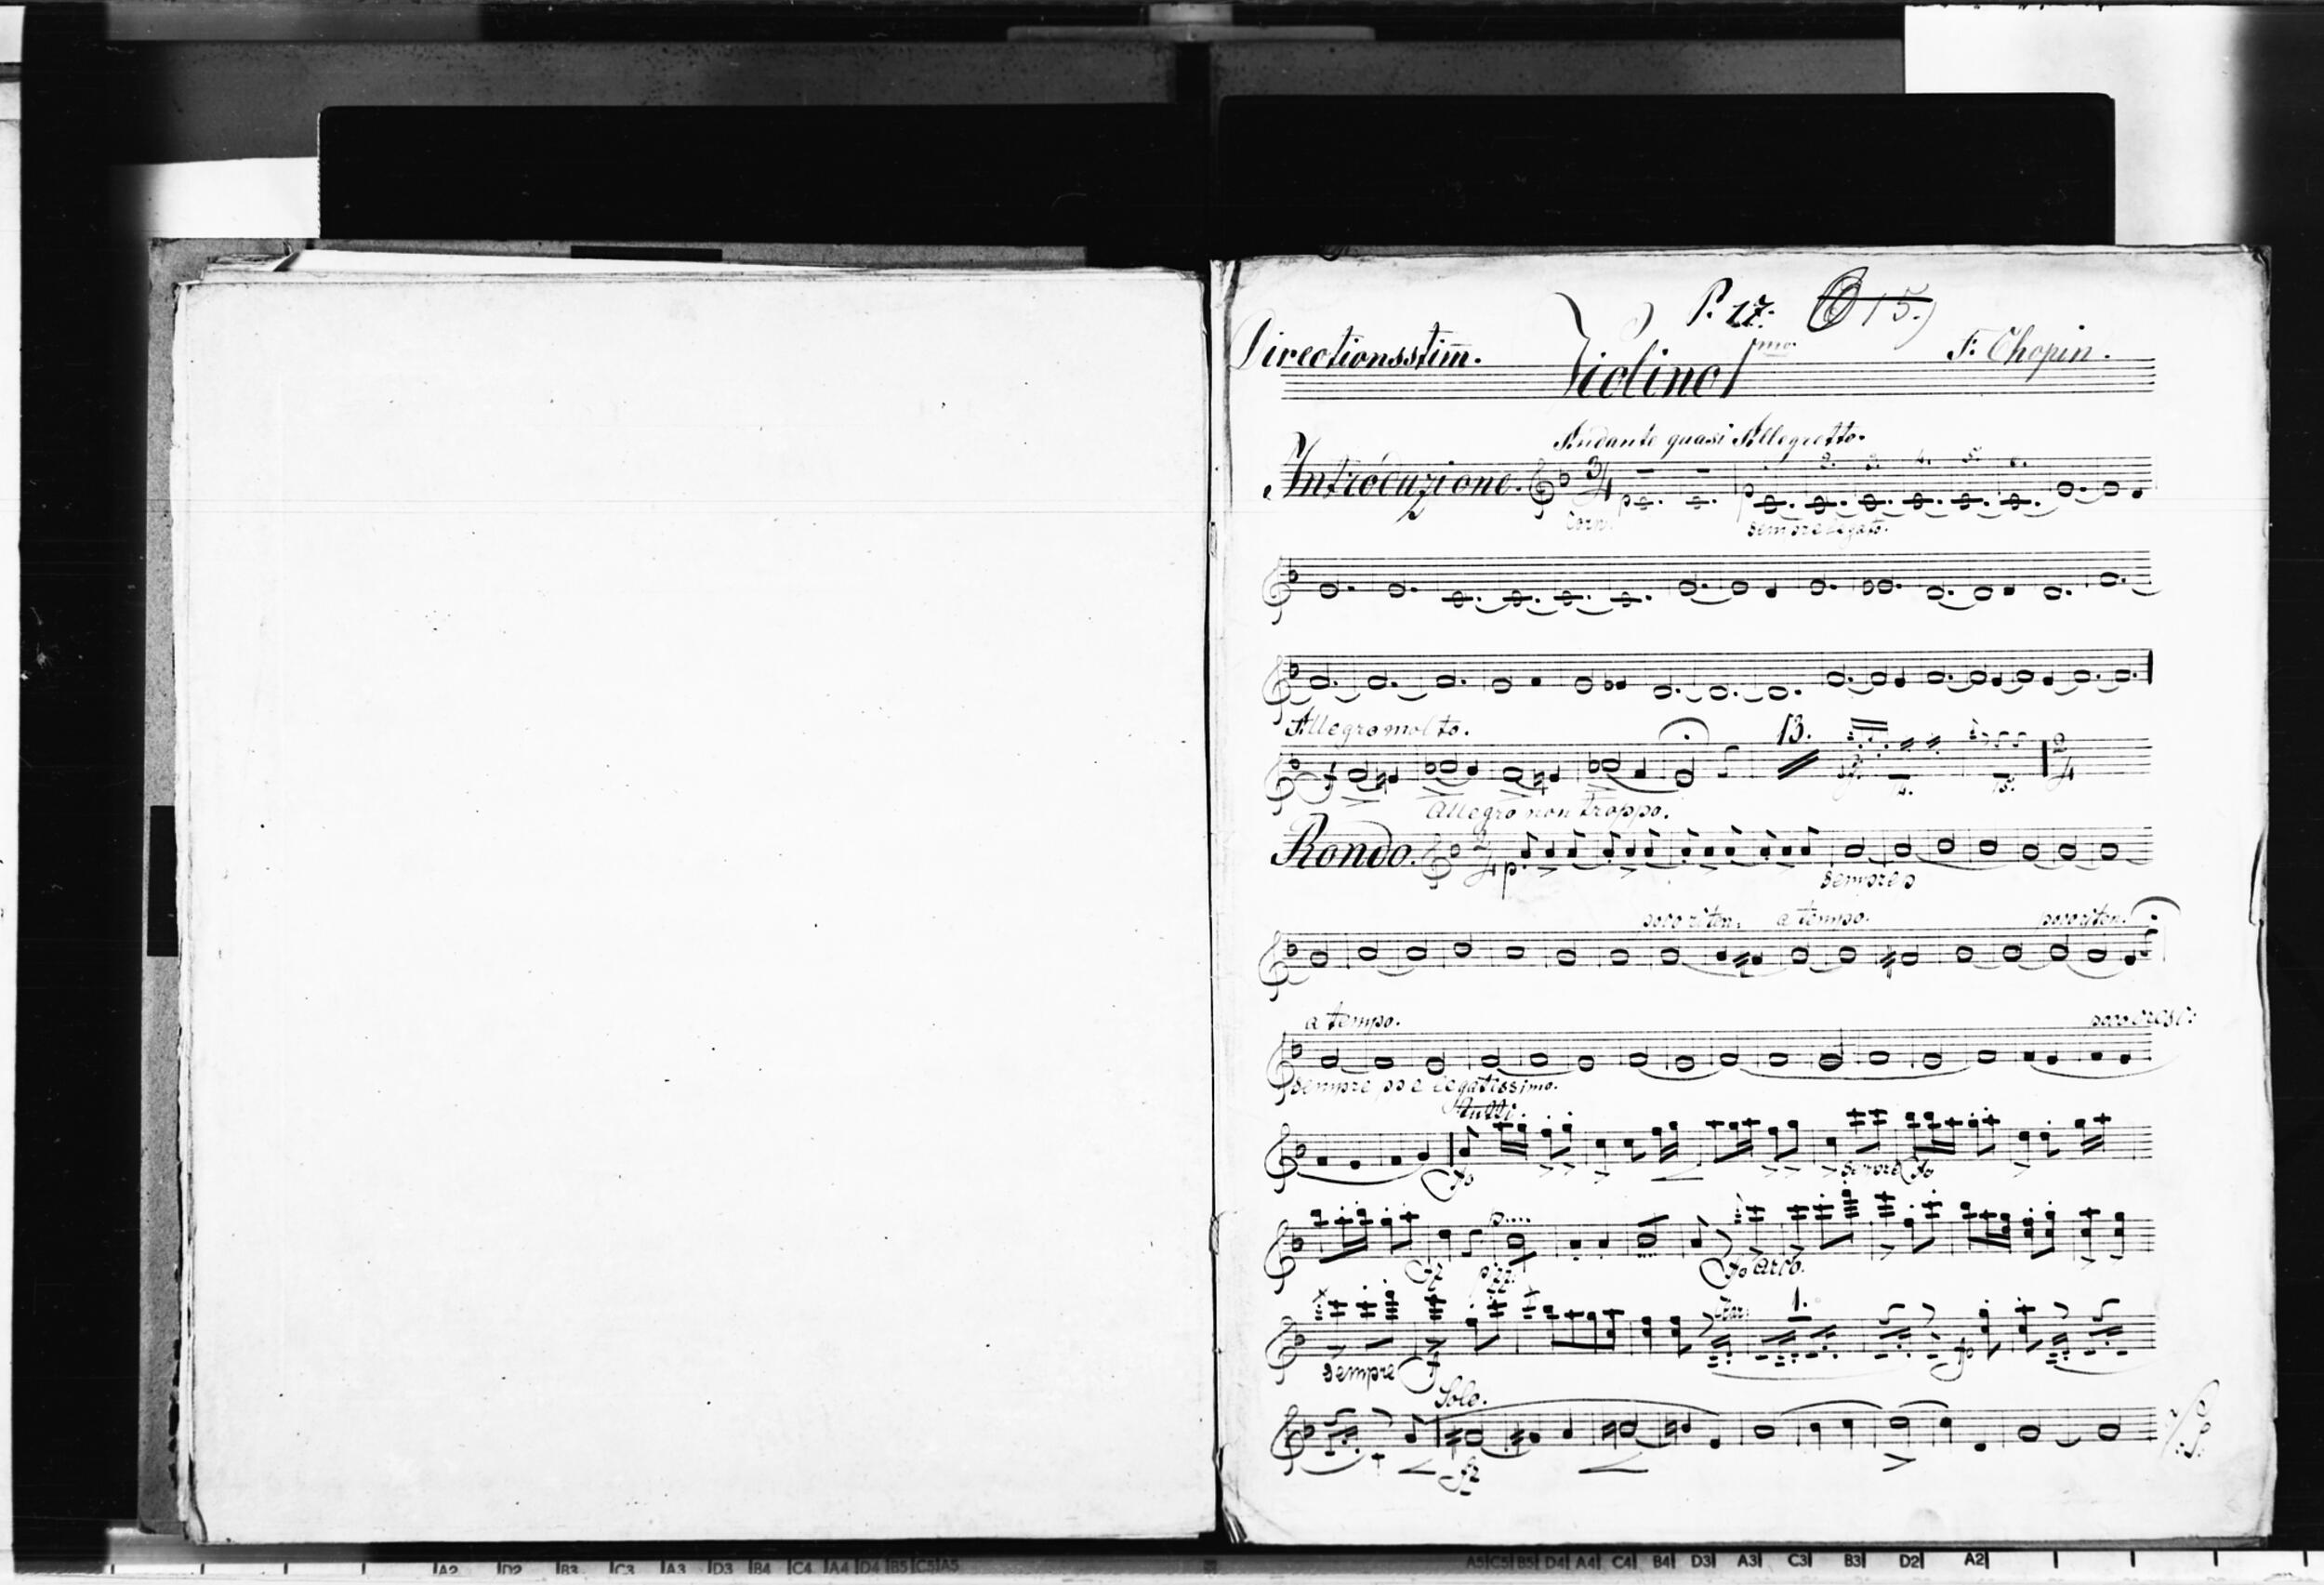 P. 17. 15.)
Directionsstim̅. Violino 1mo. F. Chopin.
Andante quasi Allegretto.
Introduzione. 3/4 2. 3. 4. 5. 6.
Corni. sempre legato.
Allegro molto. 13.
f 14. 15. 2/4
Allegro non troppo.
Rondo. 2/4 p.
sempre p
poco riten. a tempo. poco riten.
a tempo. poco cresc:
sempre pp e legatissimo.
Tutti.
fo sempre fo
fz pizz. fo arco.
1.
sempre f fo
Solo.
fz
V:S:
A2 D2 B3 C3 A3 D3 B4 C4 A4 D4 B5 C5 A5
A5 C5 B5 D4 A4 C4 B4 D3 A3 C3 B3 D2 A2